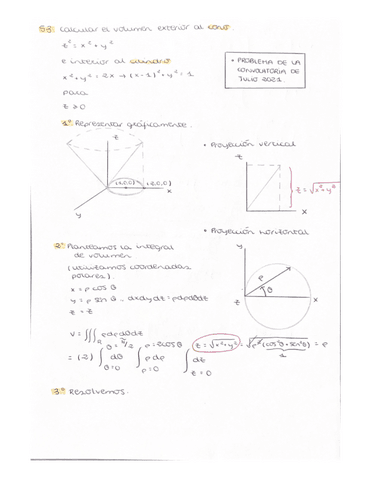 S3: Calcular el volumen exterior al cono.
z² = x² + y²
e interior al cilindro
x² + y² = 2x → (x-1)² + y² = 1
para
z ≥ 0
• PROBLEMA DE LA
CONVOCATORIA DE
JULIO 2021.
1º Representar gráficamente.
z
(1,0,0)
(2,0,0)
x
y
• Proyección vertical
z
z = √x² + y²
x
• Proyección horizontal
y
ρ
θ
z
x
2º Planteamos la integral
de volumen
(utilizamos coordenadas
polares).
x = ρ cos θ
y = ρ sen θ → dxdydz = ρdρdθdz
z = z
V = ∭ ρdρdθdz
= (2) ∫ θ=0 θ=π/2 dθ ∫ ρ=0 ρ=2cosθ ρdρ ∫ z=0 z=√x²+y² dz
= √ρ²(cos²θ+sen²θ) = ρ
1
3º Resolvemos.